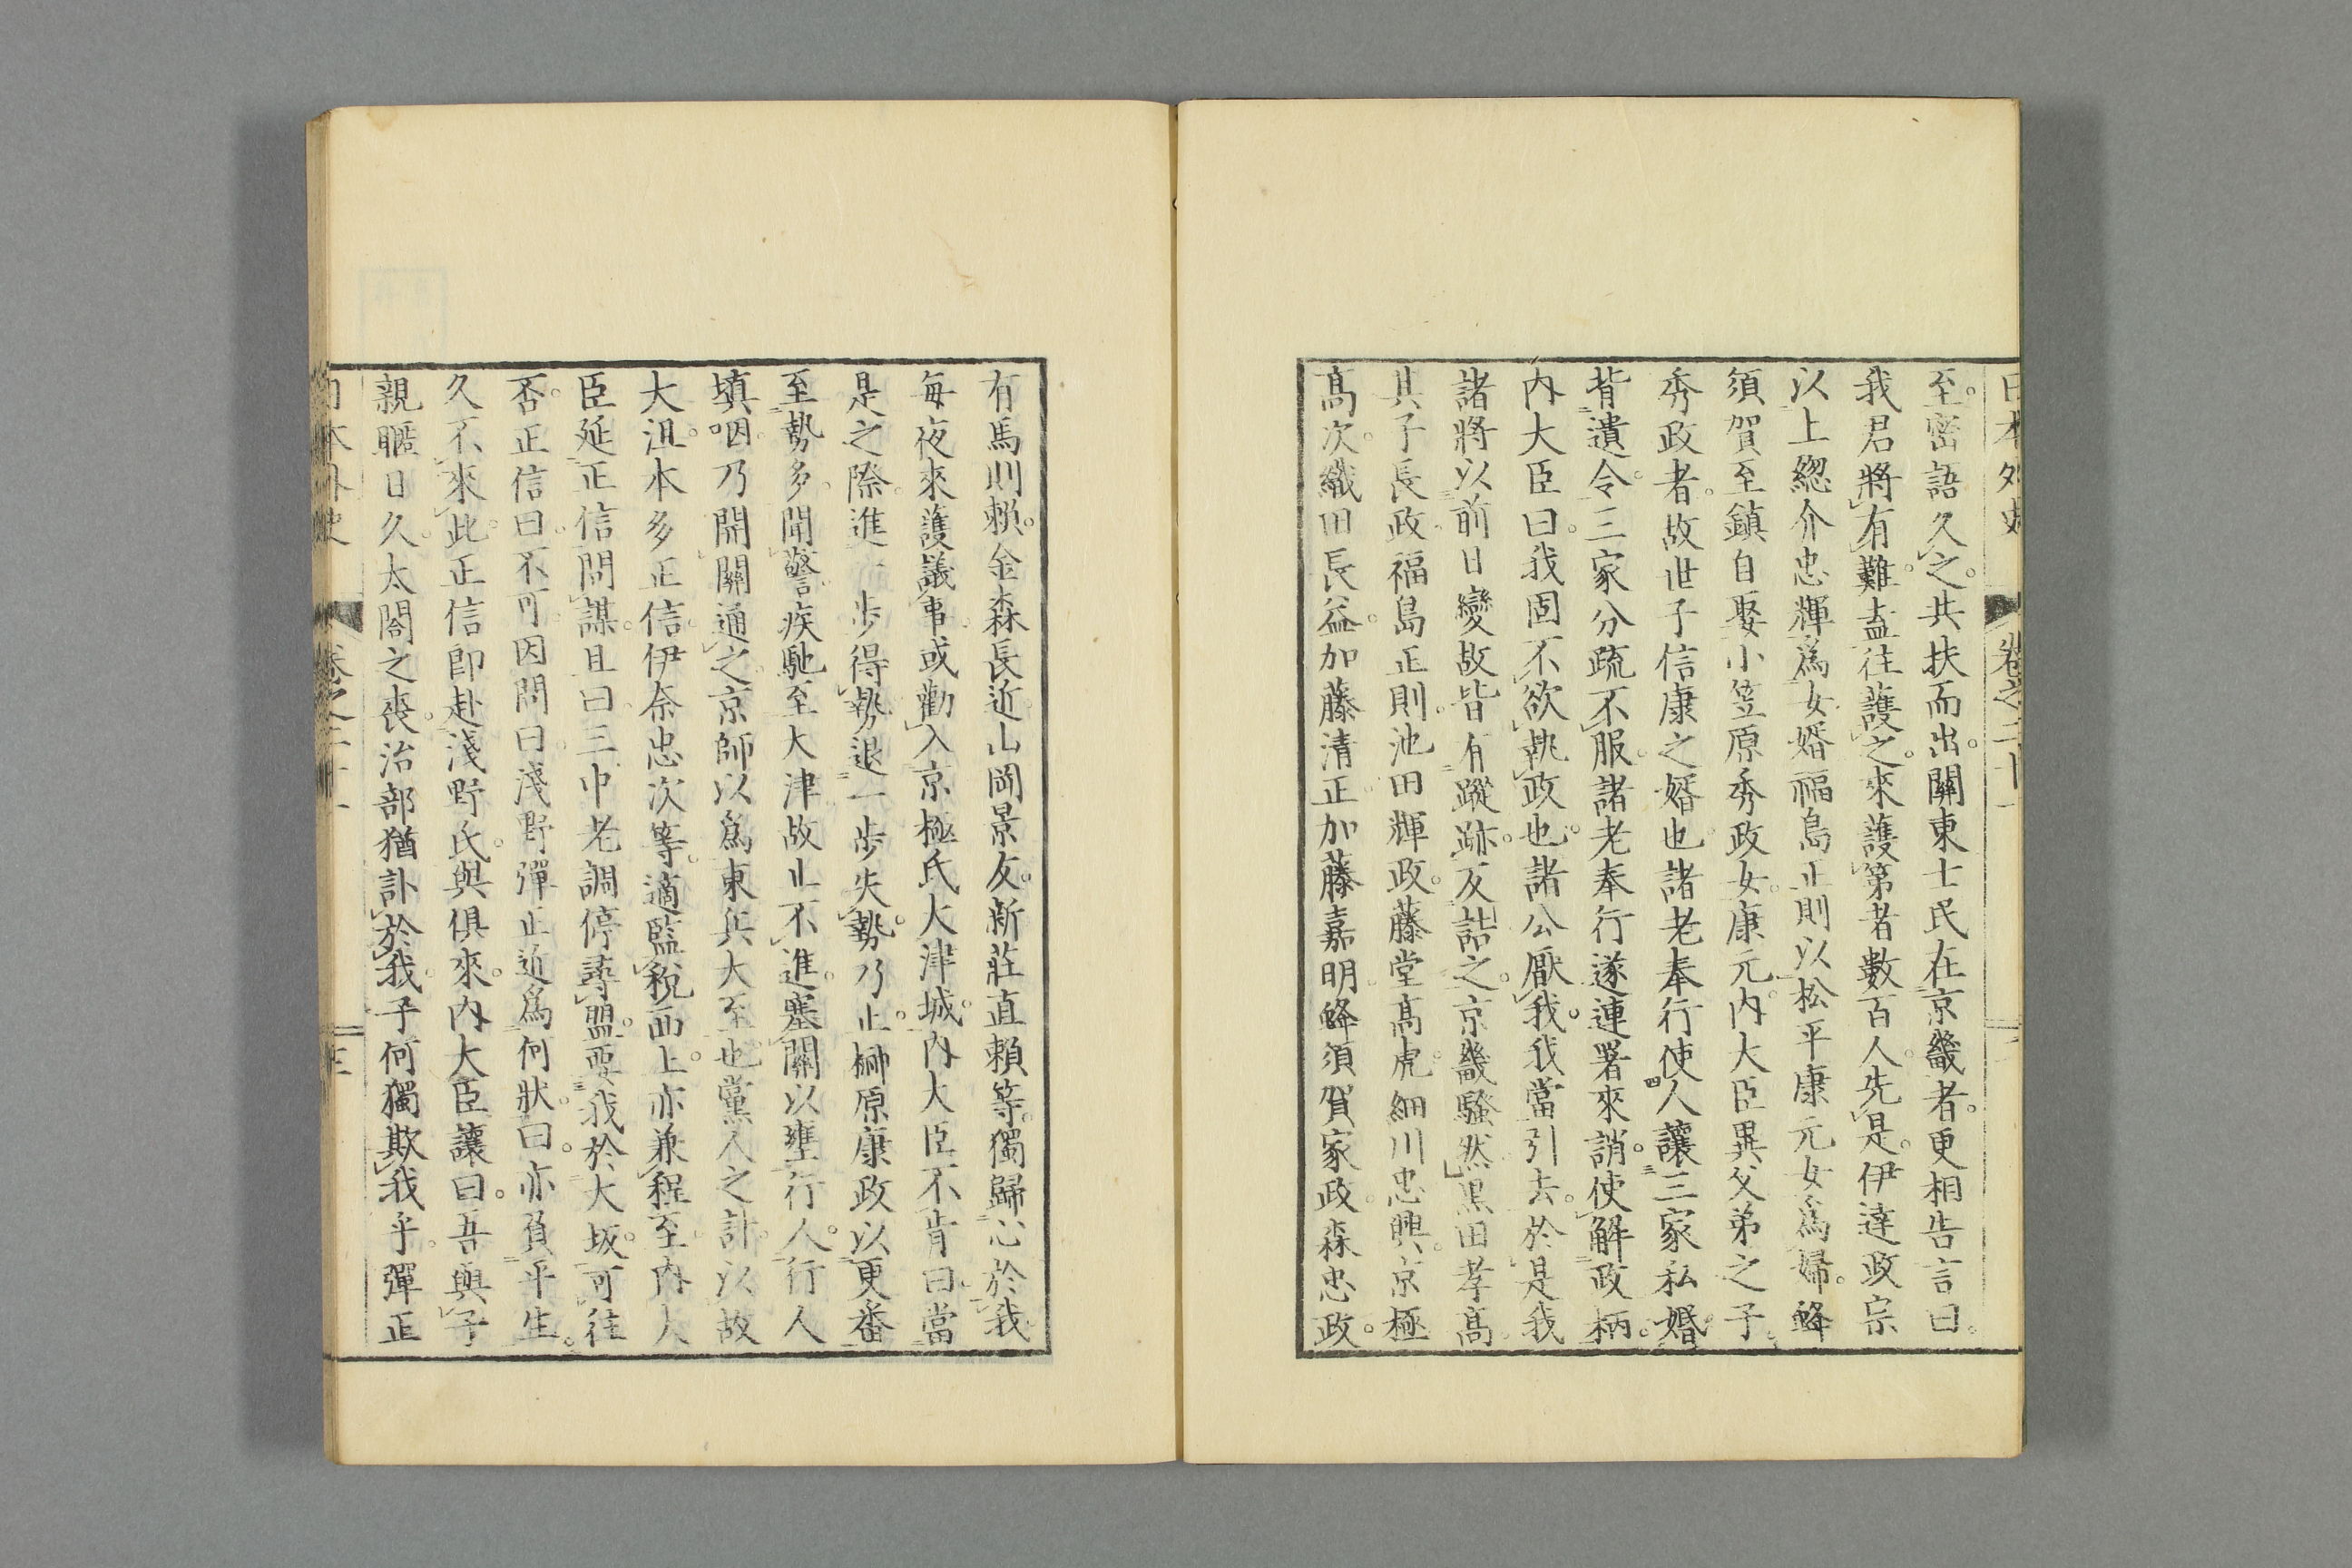 日本外史 卷之二十一
至。密語久之。共扶而出。關東士民在京畿者。更相告言曰。
我君將有難。盍往護之。來護第者數百人。先是。伊達政宗
以上總介忠輝爲女婿。福島正則以松平康元女爲婦。蜂
須賀至鎮自娶小笠原秀政女。康元。內大臣異父弟之子。
秀政者。故世子信康之婿也。諸老奉行使人讓三家私婚
背遺令。三家分疏不服。諸老奉行遂連署來誚。使解政柄。
內大臣曰。我固不欲執政也。諸公厭我。我當引去。於是我
諸將以前日變故皆有蹤跡。反詰之。京畿騷然。黑田孝高。
其子長政。福島正則。池田輝政。藤堂高虎。細川忠興。京極
高次。織田長益。加藤清正。加藤嘉明。蜂須賀家政。森忠政。
有馬則賴。金森長近。山岡景友。新莊直賴等。獨歸心於我。
每夜來護議事。或勸入京極氏大津城。內大臣不肯曰。當
是之際。進一步得勢。退一步失勢。乃止。榊原康政以更番
至勢多。聞警疾馳至大津。故止不進。塞關以壅行人。行人
填咽。乃開關通之。京師以爲東兵大至也。黨人之計以故
大沮。本多正信。伊奈忠次等。適監稅西上。亦兼程至。內大
臣延正信問謀。且曰。三中老調停尋盟。要我於大坂。可往
否。正信曰。不可。因問曰。淺野彈正近爲何狀。曰。亦負平生。
久不來此。正信卽赴淺野氏。與俱來。內大臣讓曰。吾與子
親暱日久。太閤之喪。治部猶訃於我。子何獨欺我乎。彈正
日本外史 卷之二十一